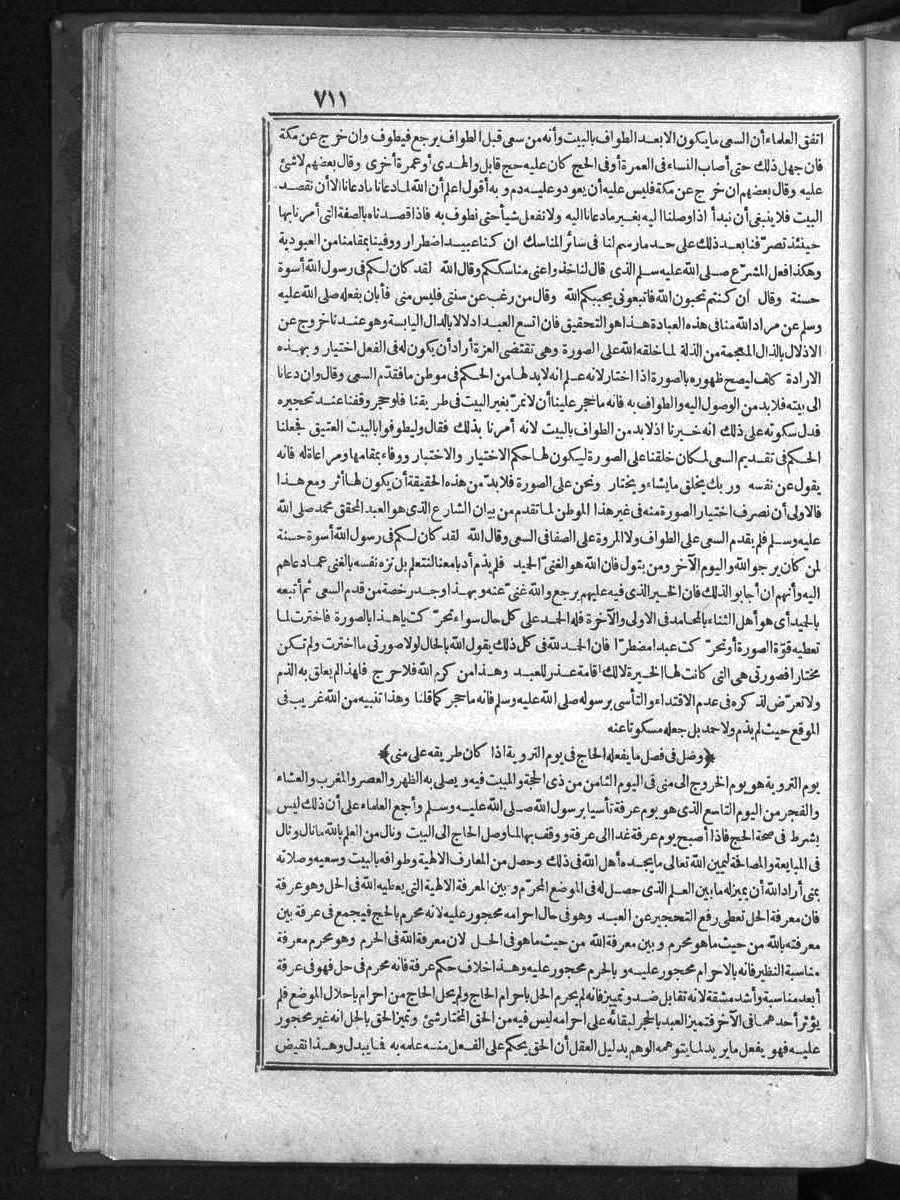 ٧١١
اتفق العلماء أن السعى ما يكون الا بعد الطواف بالبيت وأنه من سعى قبل الطواف يرجع فيطوف وان خرج عن مكة
فان جهل ذلك حتى أصاب النساء فى العمرة أو فى الحج كان عليه حج قابل والهدى أو عمرة أخرى وقال بعضهم لاشئ
عليه وقال بعضهم ان خرج عن مكة فليس عليه أن يعود وعليه دم وبه أقول اعلم أن الله لما دعانا ما دعانا الا أن نقصد
البيت فلا ينبغى أن نبدأ اذا وصلنا اليه بغير ما دعانا اليه ولا نفعل شيأ حتى نطوف به فاذا قصدناه بالصفة التى أمرنا بها
حينئذ تصرّفنا بعد ذلك على حد ما رسم لنا فى سائر المناسك ان كنا عبيد اضطرار ووفينا بمقامنا من العبودية
وهكذا فعل المشرّع صلى الله عليه سلم الذى قال لنا خذوا عنى مناسككم وقال الله لقد كان لكم فى رسول الله أسوة
حسنة وقال ان كنتم تحبون الله فاتبعونى يحببكم الله وقال من رغب عن سنتى فليس منى فأبان بفعله صلى الله عليه
وسلم عن مراد الله منا فى هذه العبادة هذا هو التحقيق فان اتسع العبد ادلالا بالدال اليابسة وهو عندنا خروج عن
الاذلال بالذال المعجمة من الذلة لما خلقه الله على الصورة وهى تقتضى العزة أراد أن يكون له فى الفعل اختيار وبهذه
الارادة كلف ليصح ظهوره بالصورة اذا اختار لانه علم انه لا بد لها من الحكم فى موطن ما فقدّم السعى وقال وان دعانا
الى بيته فلا بد من الوصول اليه والطواف به فانه ما حجر علينا أن لا نمرّ بغير البيت فى طريقنا فلو حجر وقفنا عند تحجيره
فدل سكوته على ذلك انه خيرنا اذ لا بد من الطواف بالبيت لانه أمرنا بذلك فقال وليطوفوا بالبيت العتيق فجعلنا
الحكم فى تقديم السعى لمكان خلقنا على الصورة ليكون لها حكم الاختيار والاختبار ووفاء بمقامها ومراعاة له فانه
يقول عن نفسه وربك يخلق ما يشاء ويختار ونحن على الصورة فلا بدّ من هذه الحقيقة أن يكون لها أثر ومع هذا
فالاولى أن نصرف اختيار الصورة منه فى غير هذا الموطن لما تقدم من بيان الشارع الذى هو العبد المحقق محمد صلى الله
عليه وسلم فلم يقدم السعى على الطواف ولا المروة على الصفا فى السعى وقال الله لقد كان لكم فى رسول الله أسوة حسنة
لمن كان يرجو الله واليوم الآخر ومن يتول فان الله هو الغنىّ الحميد فلم يذم أدبا معنا لنتعلم بل نزه نفسه بالغنى عما دعاهم
اليه وأنهم ان أجابوا لذلك فان الخير الذى فيه عليهم يرجع والله غنىّ عنه وبهذا وجد رخصة من قدم السعى ثم أتبعه
بالحميد أى هو أهل الثناء بالمحامد فى الاولى والآخرة فله الحمد على كل حال سواء تحرّكت يا هذا بالصورة فاخترت لما
تعطيه قوّة الصورة أو تحرّكت عبدا مضطرّا فان الحمد لله فى كل ذلك يقول الله بالحال لولا صورتى ما اخترت ولم تكن
مختارا فصورتى هى التى كانت لها الخيرة لا لك اقامة عذر للعبد وهذا من كرم الله فلا حرج فلهذا لم يعلق به الذم
ولا تعرّض لذكره فى عدم الاقتداء والتأسى برسوله صلى الله عليه وسلم فانه ما حجر كما قلنا وهذا تنبيه من الله غريب فى
الموقع حيث لم يذم ولا حمد بل جعله مسكوتا عنه
﴿وصل فى فصل ما يفعله الحاج فى يوم التروية اذا كان طريقه على منى﴾
يوم التروية هو يوم الخروج الى منى فى اليوم الثامن من ذى الحجة والمبيت فيه ويصلى به الظهر والعصر والمغرب والعشاء
والفجر من اليوم التاسع الذى هو يوم عرفة تأسيا برسول الله صلى الله عليه وسلم وأجمع العلماء على أن ذلك ليس
بشرط فى صحة الحج فاذا أصبح يوم عرفة غدا الى عرفة ووقف بها لما وصل الحاج الى البيت ونال من العلم بالله ما نال ونال
فى المبايعة والمصافحة ليمين الله تعالى ما يجده أهل الله فى ذلك وحصل من المعارف الالهية وطوافه بالبيت وسعيه وصلاته
بمنى أراد الله أن يميز له ما بين العلم الذى حصل له فى الموضع المحرّم وبين المعرفة الالهية التى يعطيه الله فى الحل وهو عرفة
فان معرفة الحل تعطى رفع التحجير عن العبد وهو فى حال احرامه محجور عليه لانه محرم بالحج فيجمع فى عرفة بين
معرفته بالله من حيث ما هو محرم وبين معرفة الله من حيث ما هو فى الحل لان معرفة الله فى الحرم وهو محرم معرفة
مناسبة النظير فانه بالاحرام محجور عليه وبالحرم محجور عليه وهذا خلاف حكم عرفة فانه محرم فى حل فهو فى عرفة
أبعد مناسبة وأشد مشقة لانه تقابل ضد وتمييز فانه لم يحرم الحل باحرام الحاج ولم يحل الحاج من احرام باحلال الموضع فلم
يؤثر أحدهما فى الآخر فتميز العبد بالحجر لبقائه على احرامه ليس فيه من الحق المختار شئ وتميز الحق بالحل انه غير محجور
عليه فهو يفعل ما يريد لما يتوهمه الوهم بدليل العقل أن الحق يحكم على الفعل منه علمه به فما يبدل وهذا نقيض